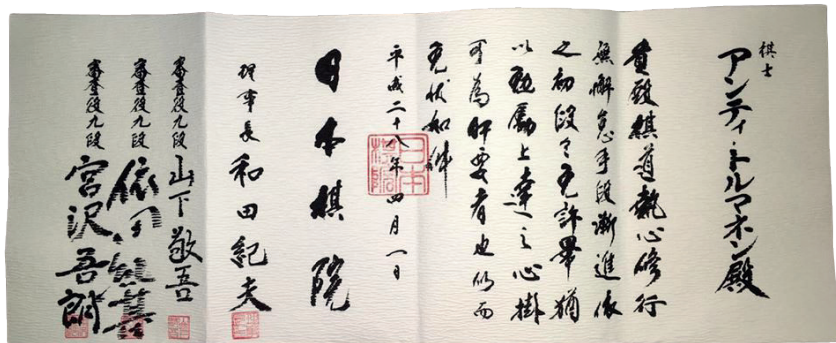 棋士
アンティ・トルマネン殿
貴殿棋道執心修行
無懈怠手段漸進依
之初段令免許畢猶
以勉励上達之心掛
可為肝要者也仍而
免状如件
平成二十八年四月一日
日本棋院
理事長 和田紀夫
審査役九段 山下敬吾
審査役九段 依田紀基
審査役九段 宮沢吾朗